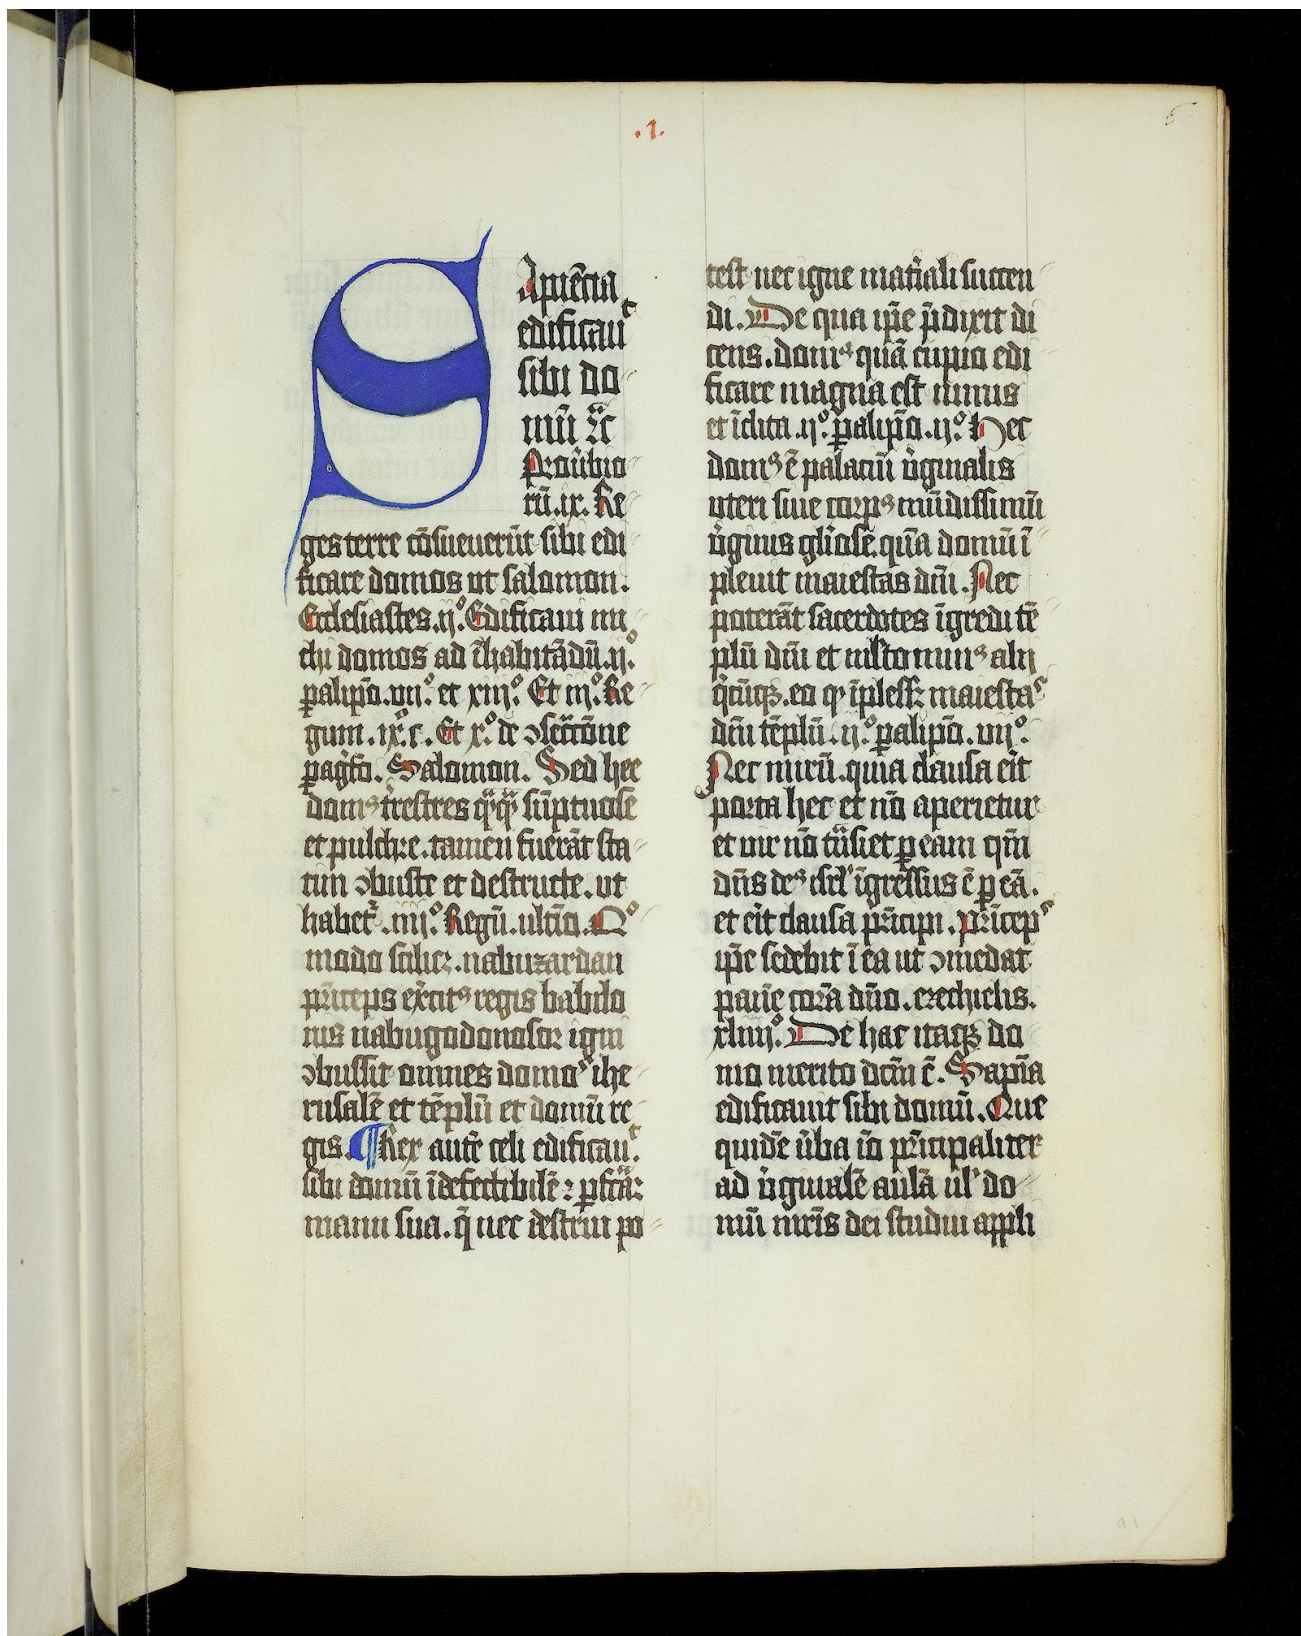 .1.
6
Sapiẽcia
edificauᵗ
sibi do
mũ ⁊c̃
Prou̾bio
rũ.ix. Re
ges terre cõsueuerũt sibi edi
ficare domos ut salomon.
Ecclesiastes.ij.º Edificaui mi
chi domos ad ĩhabitãdũ.ij.º
ꝑalipõ.vij.º et xiij.º Et iij.º Re
gum.ix.º c. Et x.º de ↄsecc̃one
ꝑagfo. Salomon. Sed hee
domꝰ t̾restres sũptuose
et pulchre. tamen fuerãt sta
tim ↄbuste et destructe. ut
habet᷑.iiij.º Regũ.ultĩo. Qº
modo scilicꝫ. nabuzardan
pͥnceps ex̾citꝰ regis babilo
nis nabugodonosor igni
ↄbussit omnes domoˢ ihe
rusalẽ et tẽplũ et domũ re
gis. ¶ Rex autẽ celi edificauᵗ.
sibi domũ ĩdefectibilẽ ⁊ ꝑfcãꝫ
manu sua. q̃ nec destrui po
test nec igne mat̾iali succen
di. De qua ip̃e p̃dixit di
cens. domꝰ quã cupio edi
ficare magna est nimis
et ĩclita.ij.º ꝑalipõ.ij.º Hec
domꝰ ẽ palaciũ v̾ginalis
uteri siue corpꝰ mũdissimũ
v̾ginis gl̾iose. quã domũ ĩ
pleuit maiestas dñi. Nec
poterãt sacerdotes ĩgredi tẽ
plũ dñi et alij
q̾cũqꝫ. eo ꝙ ĩplessꝫ maiestaˢ
dñi tẽplũ.ij.º ꝑalipõ.vij.º
Nec mirũ. quia clausa eͥt
porta hec et nõ aperietur
et vir nõ tͣ̃siet ꝑ eam qm̃
dñs deꝰ isrl̾ ĩgressus ẽ ꝑ eã.
et eͥt clausa pͥncipi. pͥncepˢ
ip̃e sedebit ĩ ea ut ↄmedat
panẽ corã dño. ezechielis.
xliiij.º De hac itaqꝫ do
mo merito dc̃m ẽ. Sapĩa
edificauit sibi domũ. Que
quidẽ v̾ba iõ pͥncipaliter
ad v̾ginalẽ aulã ul̾ do
mũ mr̃is dei studui appli
a1